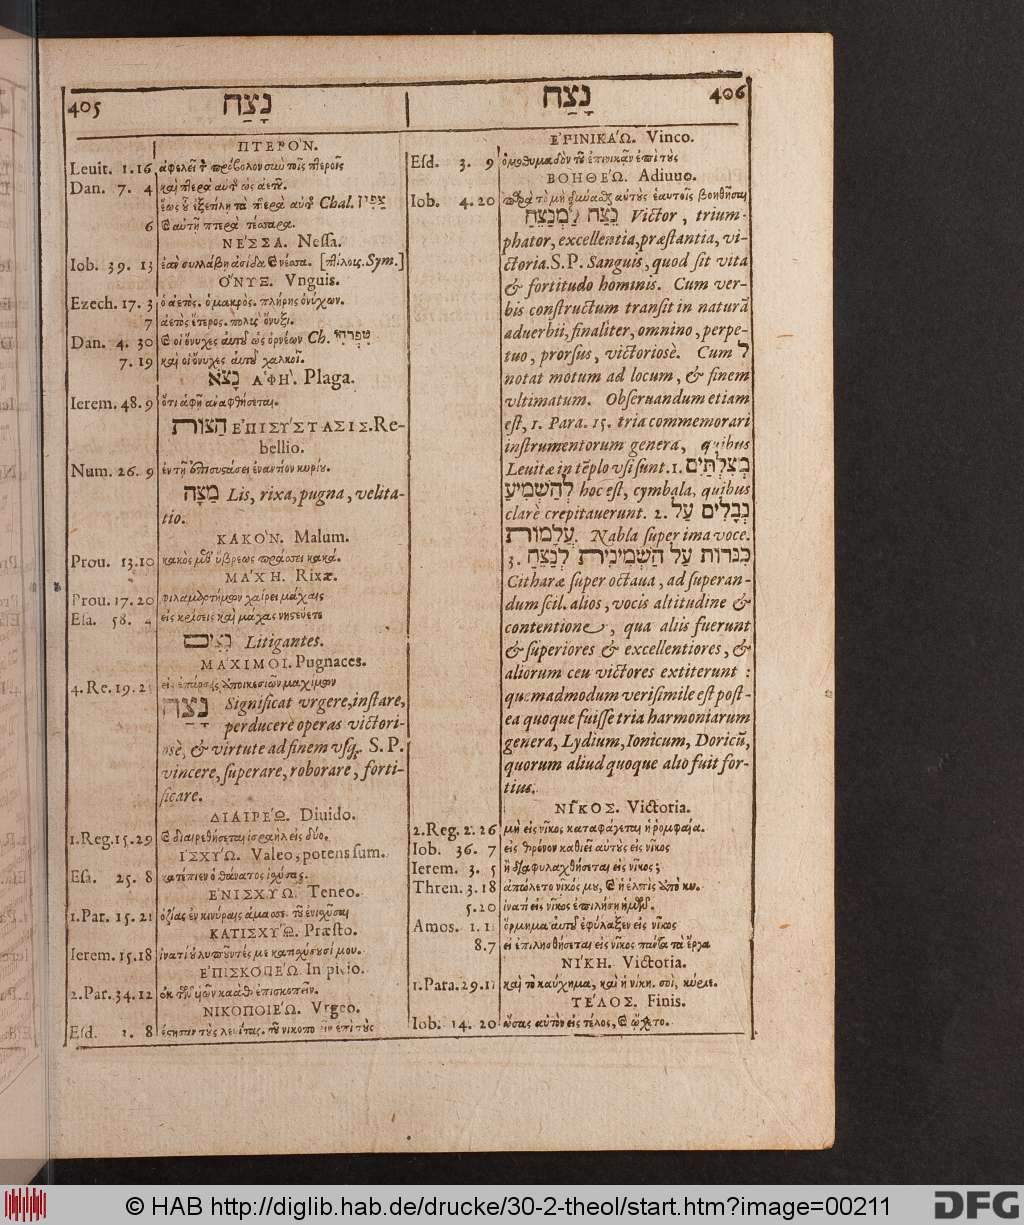 405 נָצַח
ΠΤΕΡΟ'Ν.
Leuit. 1. 16
Dan. 7. 4
ἕως οὗ ἐξετίλη τὰ πτερὰ αὐτῆς Chal.
6
ΝΕ'ΣΣΑ. Nessa.
Iob. 39. 13 ἐὰν συλλάβη ἀσίδα ϗ νέσσα. [πτίλοις. Sym.]
Ο'ΝΥΞ. Vnguis.
Ezech. 17. 3 ὁ ἀετὸς. ὁ μακρὸς. πλήρης ὀνύχων.
7 ἀετὸς ἕτερος. πολὺς ὄνυξι.
Dan. 4. 30 ϗ οἱ ὄνυχες αὐτοῦ ὡς ὀρνέων Ch.
7. 19 καὶ οἱ ὄνυχες αὐτοῦ χαλκοῖ.
נָצָא ΑΦΗ'. Plaga.
Ierem. 48. 9 ὅτι ἁφῇ ἀναφθήσεται.
הַצּוֹת ΕΠΙΣΥ'ΣΤΑΣΙΣ. Re-
bellio.
Num. 26. 9 ἐν τῇ ἐπισυστάσει ἐναντίον κυρίου.
מַצָּה Lis, rixa, pugna, velita-
tio.
ΚΑΚΟ'Ν. Malum.
Prou. 13. 10 κακὸς μεθ' ὕβρεως πράσσει κακά.
ΜΑ'ΧΗ. Rixæ.
Prou. 17. 20 φιλαμαρτήμων χαίρει μάχαις
Esa. 58. 4 εἰς κρίσεις καὶ μάχας νηστεύετε
נִצִּים Litigantes.
ΜΑ'ΧΙΜΟΙ. Pugnaces.
4. Re. 19. 25
נָצַח Significat vrgere, instare,
perducere operas victori-
osè, & virtute ad finem vsq;. S. P.
vincere, superare, roborare, forti-
ficare.
ΔΙΑΙΡΕ'Ω. Diuido.
1. Reg. 15. 29 ϗ διαιρεθήσεται ἰσραὴλ εἰς δύο.
ΙΣΧΥ'Ω. Valeo, potens sum.
Esa. 25. 8 κατέπιεν ὁ θάνατος ἰσχύσας.
ΕΝΙΣΧΥ'Ω. Teneo.
1. Par. 15. 21
ΚΑΤΙΣΧΥ'Ω. Præsto.
Ierem. 15. 18
ΕΠΙΣΚΟΠΕ'Ω.
2. Par. 34. 12
ΝΙΚΟΠΟΙΕ'Ω. Vrgeo.
Esd. 1. 8
נָצַח 406
ΕΠΙΝΙΚΑ'Ω. Vinco.
Esd. 3. 9
ΒΟΗΘΕ'Ω. Adiuuo.
Iob. 4. 20
נֵצַח לַמְנַצֵּחַ Victor, trium-
phator, excellentia, præstantia, vi-
ctoria. S. P. Sanguis, quod sit vita
& fortitudo hominis. Cum ver-
bis constructum transit in naturā
aduerbii, finaliter, omnino, perpe-
tuo, prorsus, victoriosè. Cum ל
notat motum ad locum, & finem
vltimatum. Obseruandum etiam
est, 1. Para. 15. tria commemorari
instrumentorum genera, quibus
Leuitæ in tēplo vsi sunt. 1. מְצִלְתַּיִם
לְהַשְׁמִיעַ hoc est, cymbala, quibus
clarè crepitauerunt. 2. נְבָלִים עַל
עֲלָמוֹת. Nabla superima voce.
3. כִנּרוֹת עַל הַשְּׁמִינִית לְנַצֵּחַ
Citharæ super octaua, ad superan-
dum scil. alios, vocis altitudine &
contentione, qua aliis fuerunt
& superiores & excellentiores, &
aliorum ceu victores extiterunt:
quemadmodum verisimile est post-
ea quoque fuisse tria harmoniarum
genera, Lydium, Ionicum, Doricū,
quorum aliud quoque alio fuit for-
tius.
ΝΙ͂ΚΟΣ. Victoria.
2. Reg. 2. 26 μὴ εἰς νῖκος καταφάγεται ἡ ῥομφαία.
Iob. 36. 7 εἰς θρόνον καθιεῖ αὐτοὺς εἰς νῖκος
Ierem. 3. 5 ἢ διαφυλαχθήσεται εἰς νῖκος;
Thren. 3. 18 ἀπώλετο νῖκός μου, ϗ ἡ ἐλπὶς
5. 20
Amos. 1. 11 ὅρμημα αὐτοῦ ἐφύλαξεν εἰς νῖκος
8. 7 εἰ ἐπιλησθήσεται εἰς νῖκος πάντα τὰ ἔργα
ΝΙ'ΚΗ. Victoria.
1. Para. 29. 11 καὶ τὸ καύχημα, καὶ ἡ νίκη. σοὶ, κύριε.
ΤΕ'ΛΟΣ. Finis.
Iob. 14. 20 ὦσας αὐτὸν εἰς τέλος, ϗ ᾤχετο.
© HAB http://diglib.hab.de/drucke/30-2-theol/start.htm?image=00211
DFG